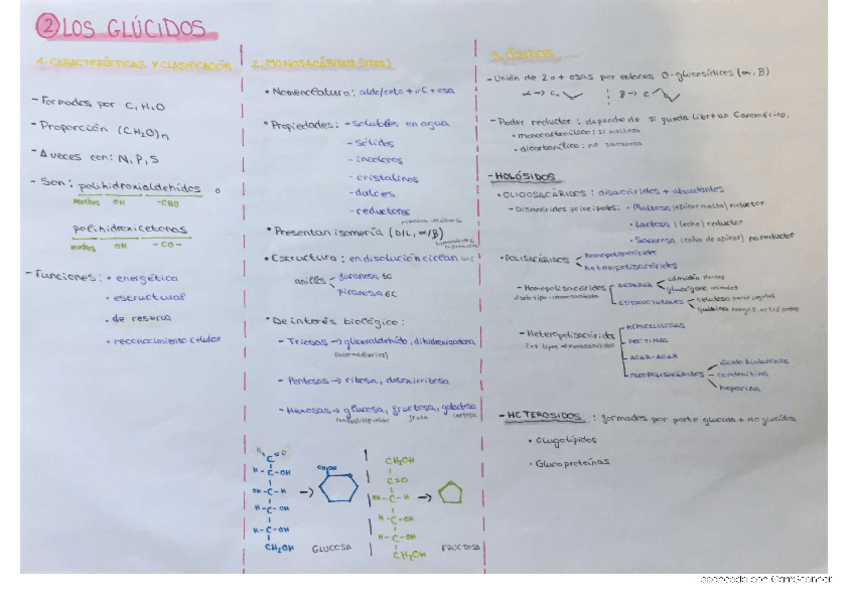 ② LOS GLÚCIDOS
1. CARACTERÍSTICAS Y CLASIFICACIÓN
- Formados por C, H, O
- Proporción (CH₂O)n
- A veces con: N, P, S
- Son: polihidroxialdehidos o
muchos OH -CHO
polihidroxicetonas
muchos OH -CO-
- Funciones: • energética
• estructural
• de reserva
• reconocimiento celular
2. MONOSACÁRIDOS (OSAS)
• Nomenclatura: aldo/ceto + nC + osa
• Propiedades: - solubles en agua
- sólidos
- incoloros
- cristalinos
- dulces
- reductores
• Presentan isomería (D/L, α/β)
• Estructura: en disolución ciclan
anillos furanosa 5C
piranosa 6C
• De interés biológico:
- Triosas → gliceraldehído, dihidroxiacetona
(intermediarios)
- Pentosas → ribosa, desoxirribosa
- Hexosas → glucosa, fructosa, galactosa
fruta lactosa
H O
C
H - C - OH
OH - C - H
H - C - OH
H - C - OH
CH₂OH
→
CH₂OH
GLUCOSA
CH₂OH
C = O
OH - C - H
H - C - OH
H - C - OH
CH₂OH
→
FRUCTOSA
3. ÓSIDOS
- Unión de 2 o + osas por enlaces O-glucosídicos (α, β)
α → C β → C
- Poder reductor: depende de si queda libre un C anomérico.
• monocarbonílico: sí maltosa
• dicarbonílico: no sacarosa
- HOLÓSIDOS
• OLIGOSACÁRIDOS: disacáridos + abundantes
- Disacáridos principales: • Maltosa (azúcar malta) reductor
• Lactosa (leche) reductor
• Sacarosa (caña de azúcar) no reductor
• POLISACÁRIDOS homopolisacáridos
heteropolisacáridos
- Homopolisacáridos RESERVA almidón plantas
1 solo tipo monosacárido glucógeno animales
ESTRUCTURALES celulosa pared vegetal
quitina hongos, artrópodos
- Heteropolisacáridos HEMICELULOSAS
2 o + tipos monosacáridos PECTINAS
AGAR-AGAR
MUCOPOLISACÁRIDOS ácido hialurónico
condroitina
heparina
- HETERÓSIDOS: formados por parte glúcida + no glúcida
• Glucolípidos
• Glucoproteínas
Escaneado con CamScanner